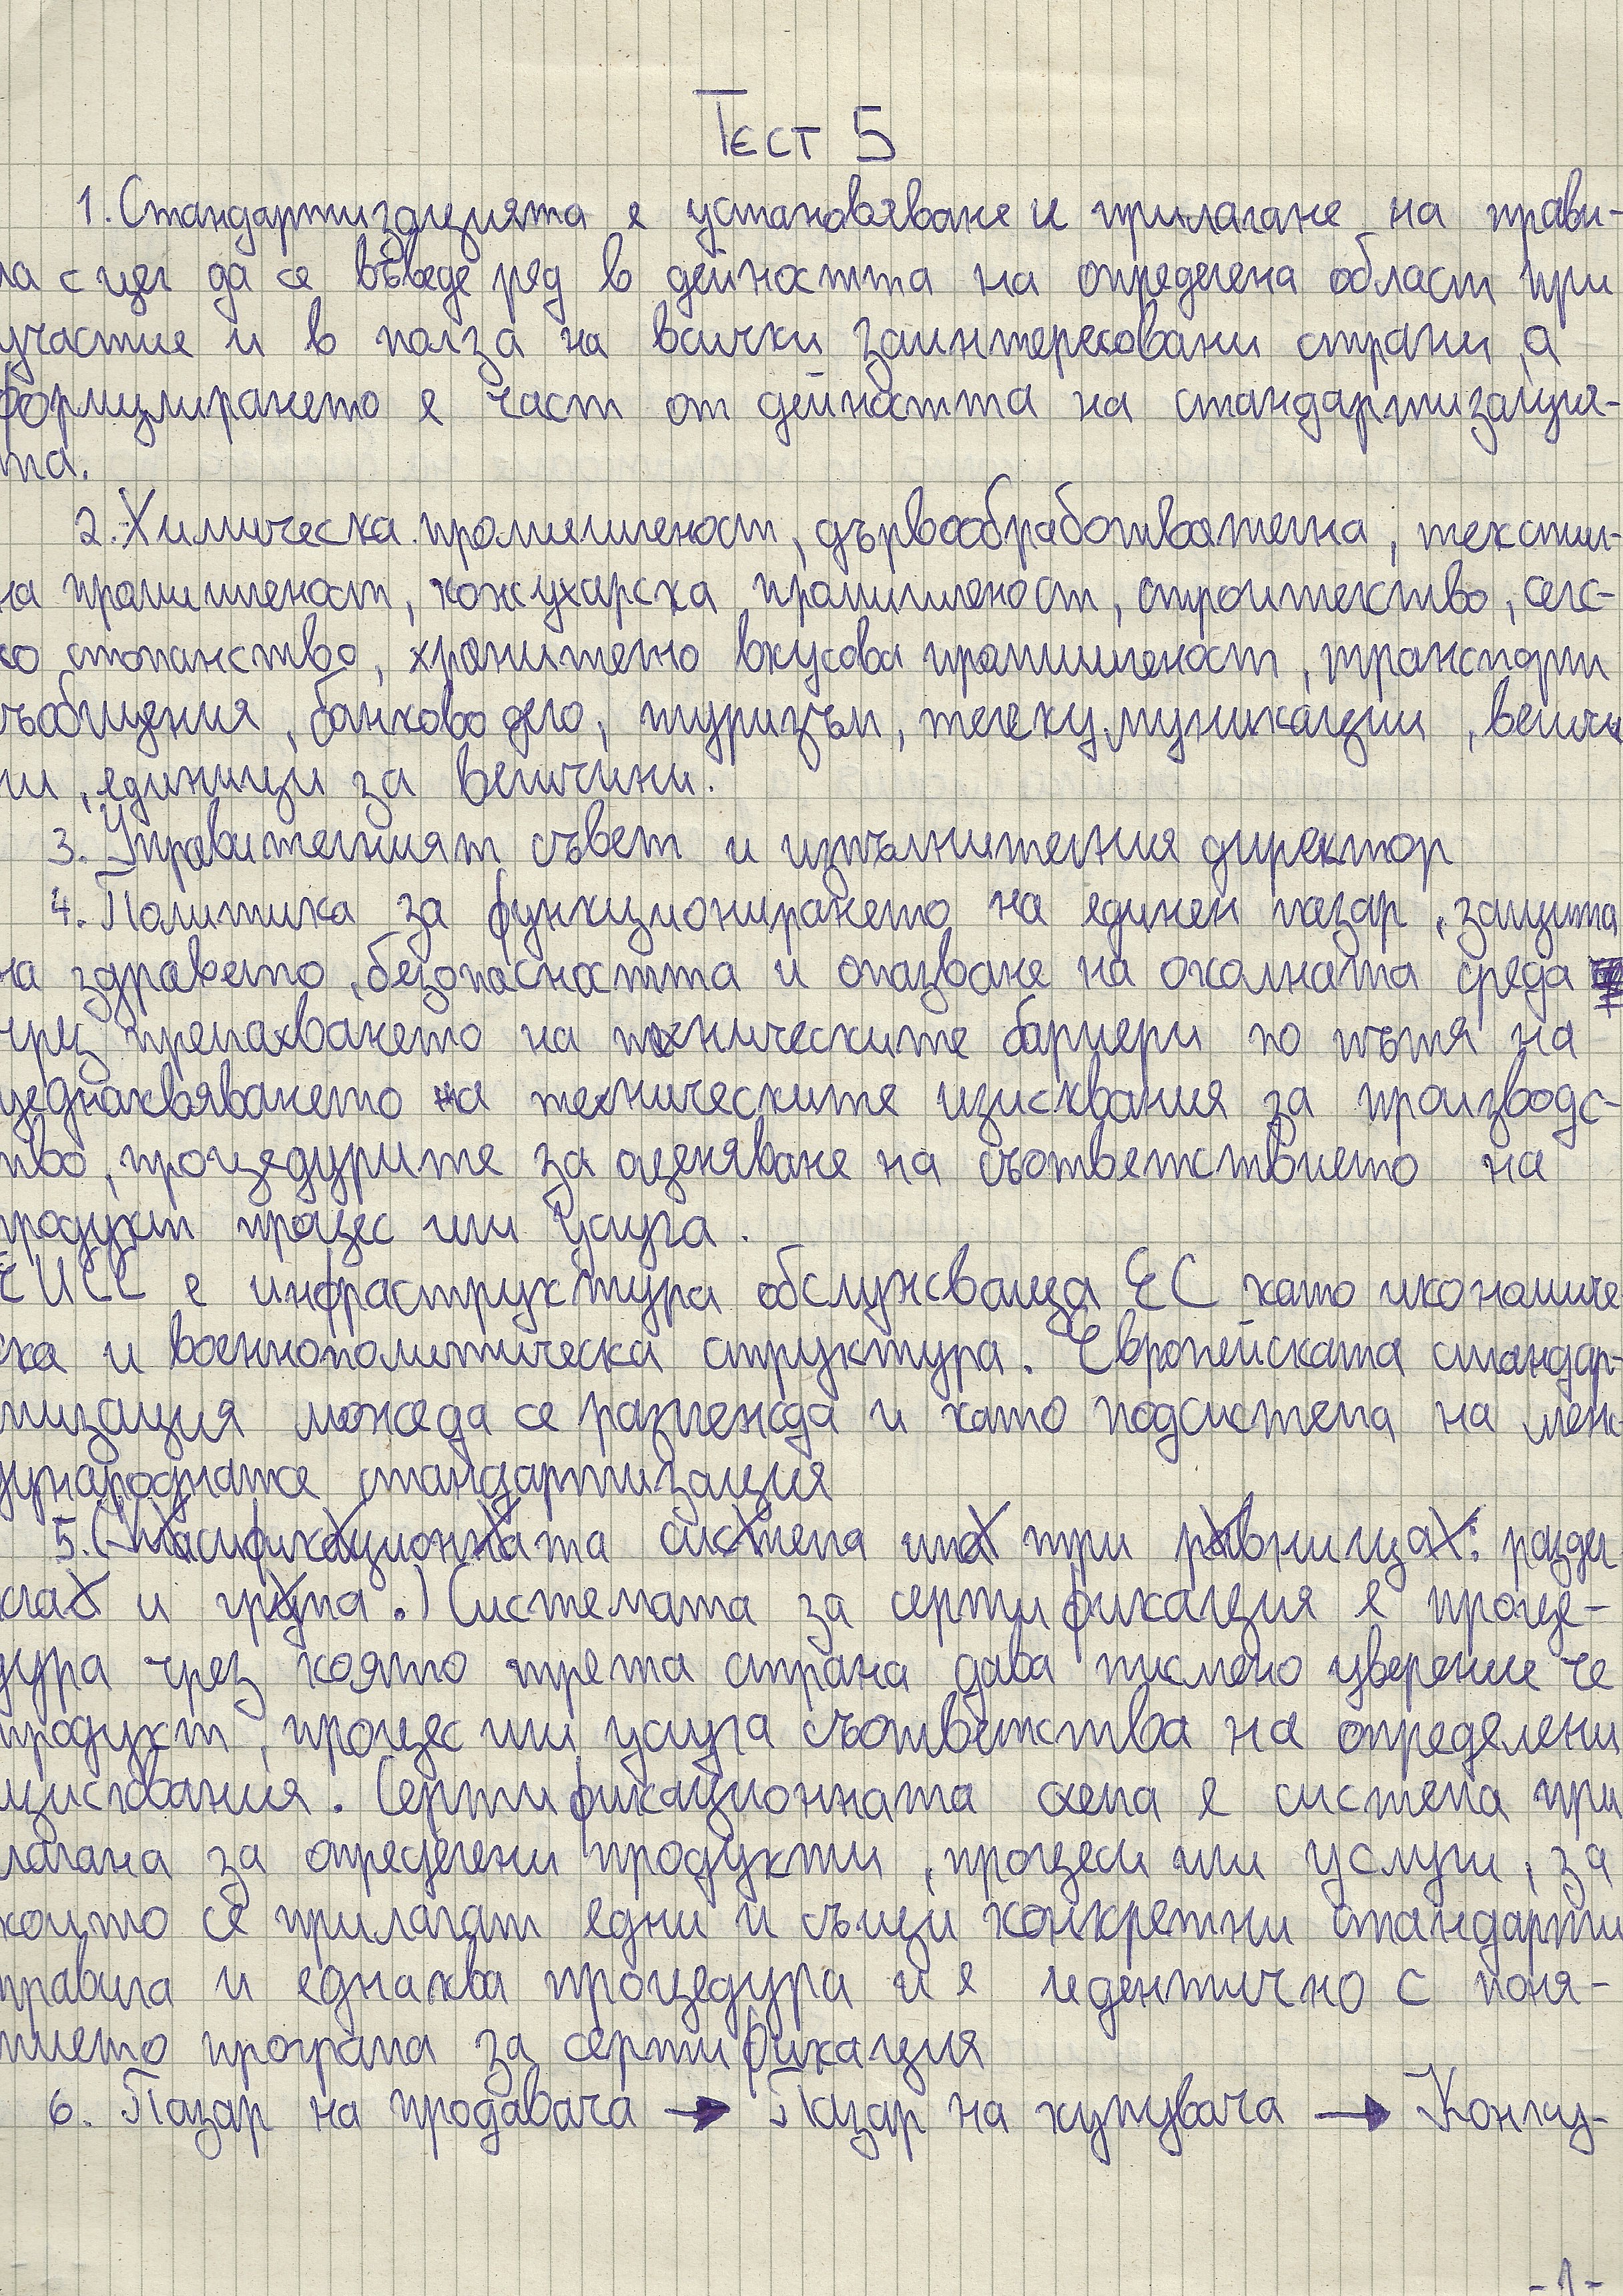 Тест 5
1. Стандартизацията е установяване и прилагане на прави-
ла с цел да се въведе ред в дейността на определена област при
участие и в полза на всички заинтересовани страни, а
е част от дейността на стандартизация-
та.
2. Химическа промишленост, дървообработвателна, тексти-
на промишленост, кожухарска промишленост, строителство, селс-
ко стопанство, хранително вкусова промишленост, транспорт
съобщения, банково дело, туризъм, телекумуникации, величи
ни, единици за величини.
3. Управителният съвет и изпълнителния директор
4. Политика за функционирането на единен пазар, защита
на здравето, безопасността и опазване на околната среда
чрез премахването на техническите бариери по пътя на
уеднаквяването на техническите изисквания за производс-
тво, процедурите за оценяване на съответствието на
продукт процес или услуга.
ЕИСС е инфраструктура обслужваща ЕС като икономиче
ска и военнополитическа структура. Европейската стандар-
тизация може да се разглежда и като подсистема на меж
дународната стандартизация
5. (Класификационната система има три равнища: раздел
клас и група.) Системата за сертификация е проце-
дура чрез която трета страна дава писмено уверение че
продукт, процес или услуга съответства на определени
изисквания. Сертификационната схема е система при
лагана за определени продукти, процеси или услуги, за
които се прилагат едни и същи конкретни стандарти
правила и еднаква процедура и е идентично с поня-
тието програма за сертификация
6. Пазар на продавача → Пазар на купувача → Конку-
- 1 -